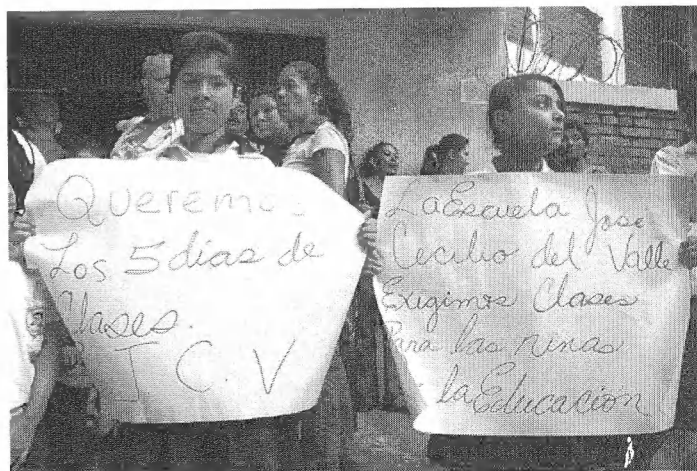 Queremos
Los 5 dias de
Clases.
J C. V
La Escuela José
Cecilio del Valle
Exigimos Clases
Para las ninas
la Educacion